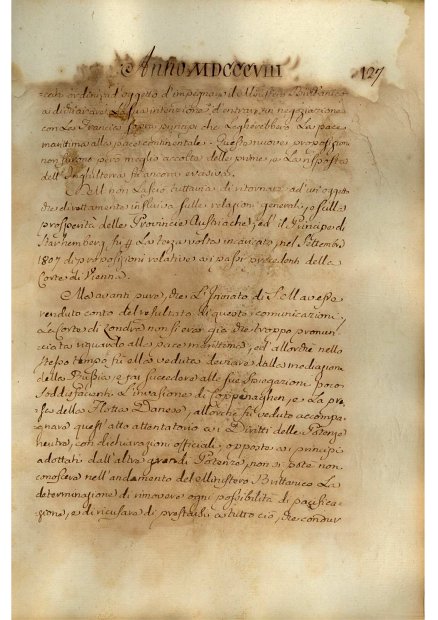 Anno MDCCCVIII 127
ordini d'oggetto d'impegnare il Ministero Brittanico
a dichiarare la sua intenzione d'entrar in negoziazione
con La Francia sopra principj che Legherebbero La pace
marittima alla pace continentale. Queste nuove proposizioni
non furono però meglio accolte delle prime, e La risposta
dell'Inghilterra fù ancora evasiva.
Ell non Lasciò tuttavia di ritornare ad un oggetto
che direttamente influiva sulle relazioni generali, e sulla
prosperità delle Provincie Austriache, ed il Principe di
Starhemberg fù La terza volta incaricato nel Settembre
1807 di proposizioni relative ai passi precedenti della
Corte di Vienna.
Ma avanti pure, che L'Inviato di S. M. avesse
renduto conto del resultato di queste comunicazioni,
La Corte di Londra non si era già che troppo pronun-
ciata riguardo alla pace marittima, ed allorchè nello
stesso tempo fù ella veduta deviare dalla mediazione
della Russia, e far succedere alle sue spiegazioni poco
soddisfacenti L'invasione di Coppenaghen, e La pre-
sa della Flotta Danese, allorchè fù veduto accompa-
gnare quest'atto attentatorio ai Diritti delle Potenze
neutre, con dichiarazioni officiali, opposte ai principj
adottati dall'altre grandi Potenze, non si potè non
conoscere nell'andamento del Ministero Brittanico La
determinazione di rimovere ogni possibilità di pacifica-
zione, e di ricusare di prestarsi a tutto ciò, che condur